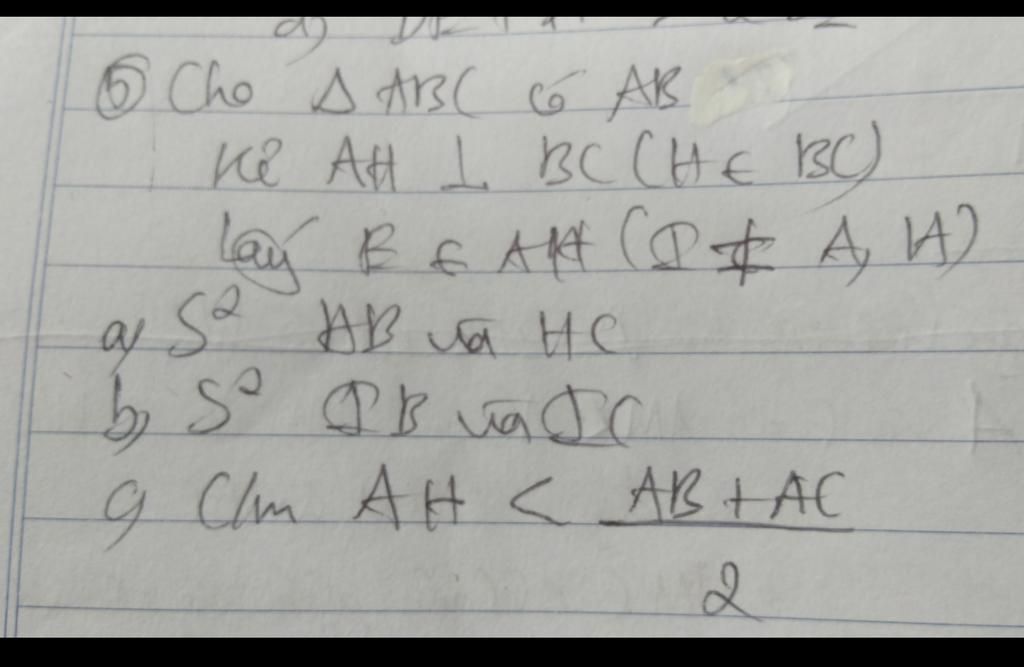 ⑤ Cho Δ ABC có AB
Kẻ AH ⊥ BC (H ∈ BC)
Lấy E ∈ AH (I ≠ A, H)
a) S² HB và HC
b) S² IB và IC
c) C/m AH < (AB + AC) / 2